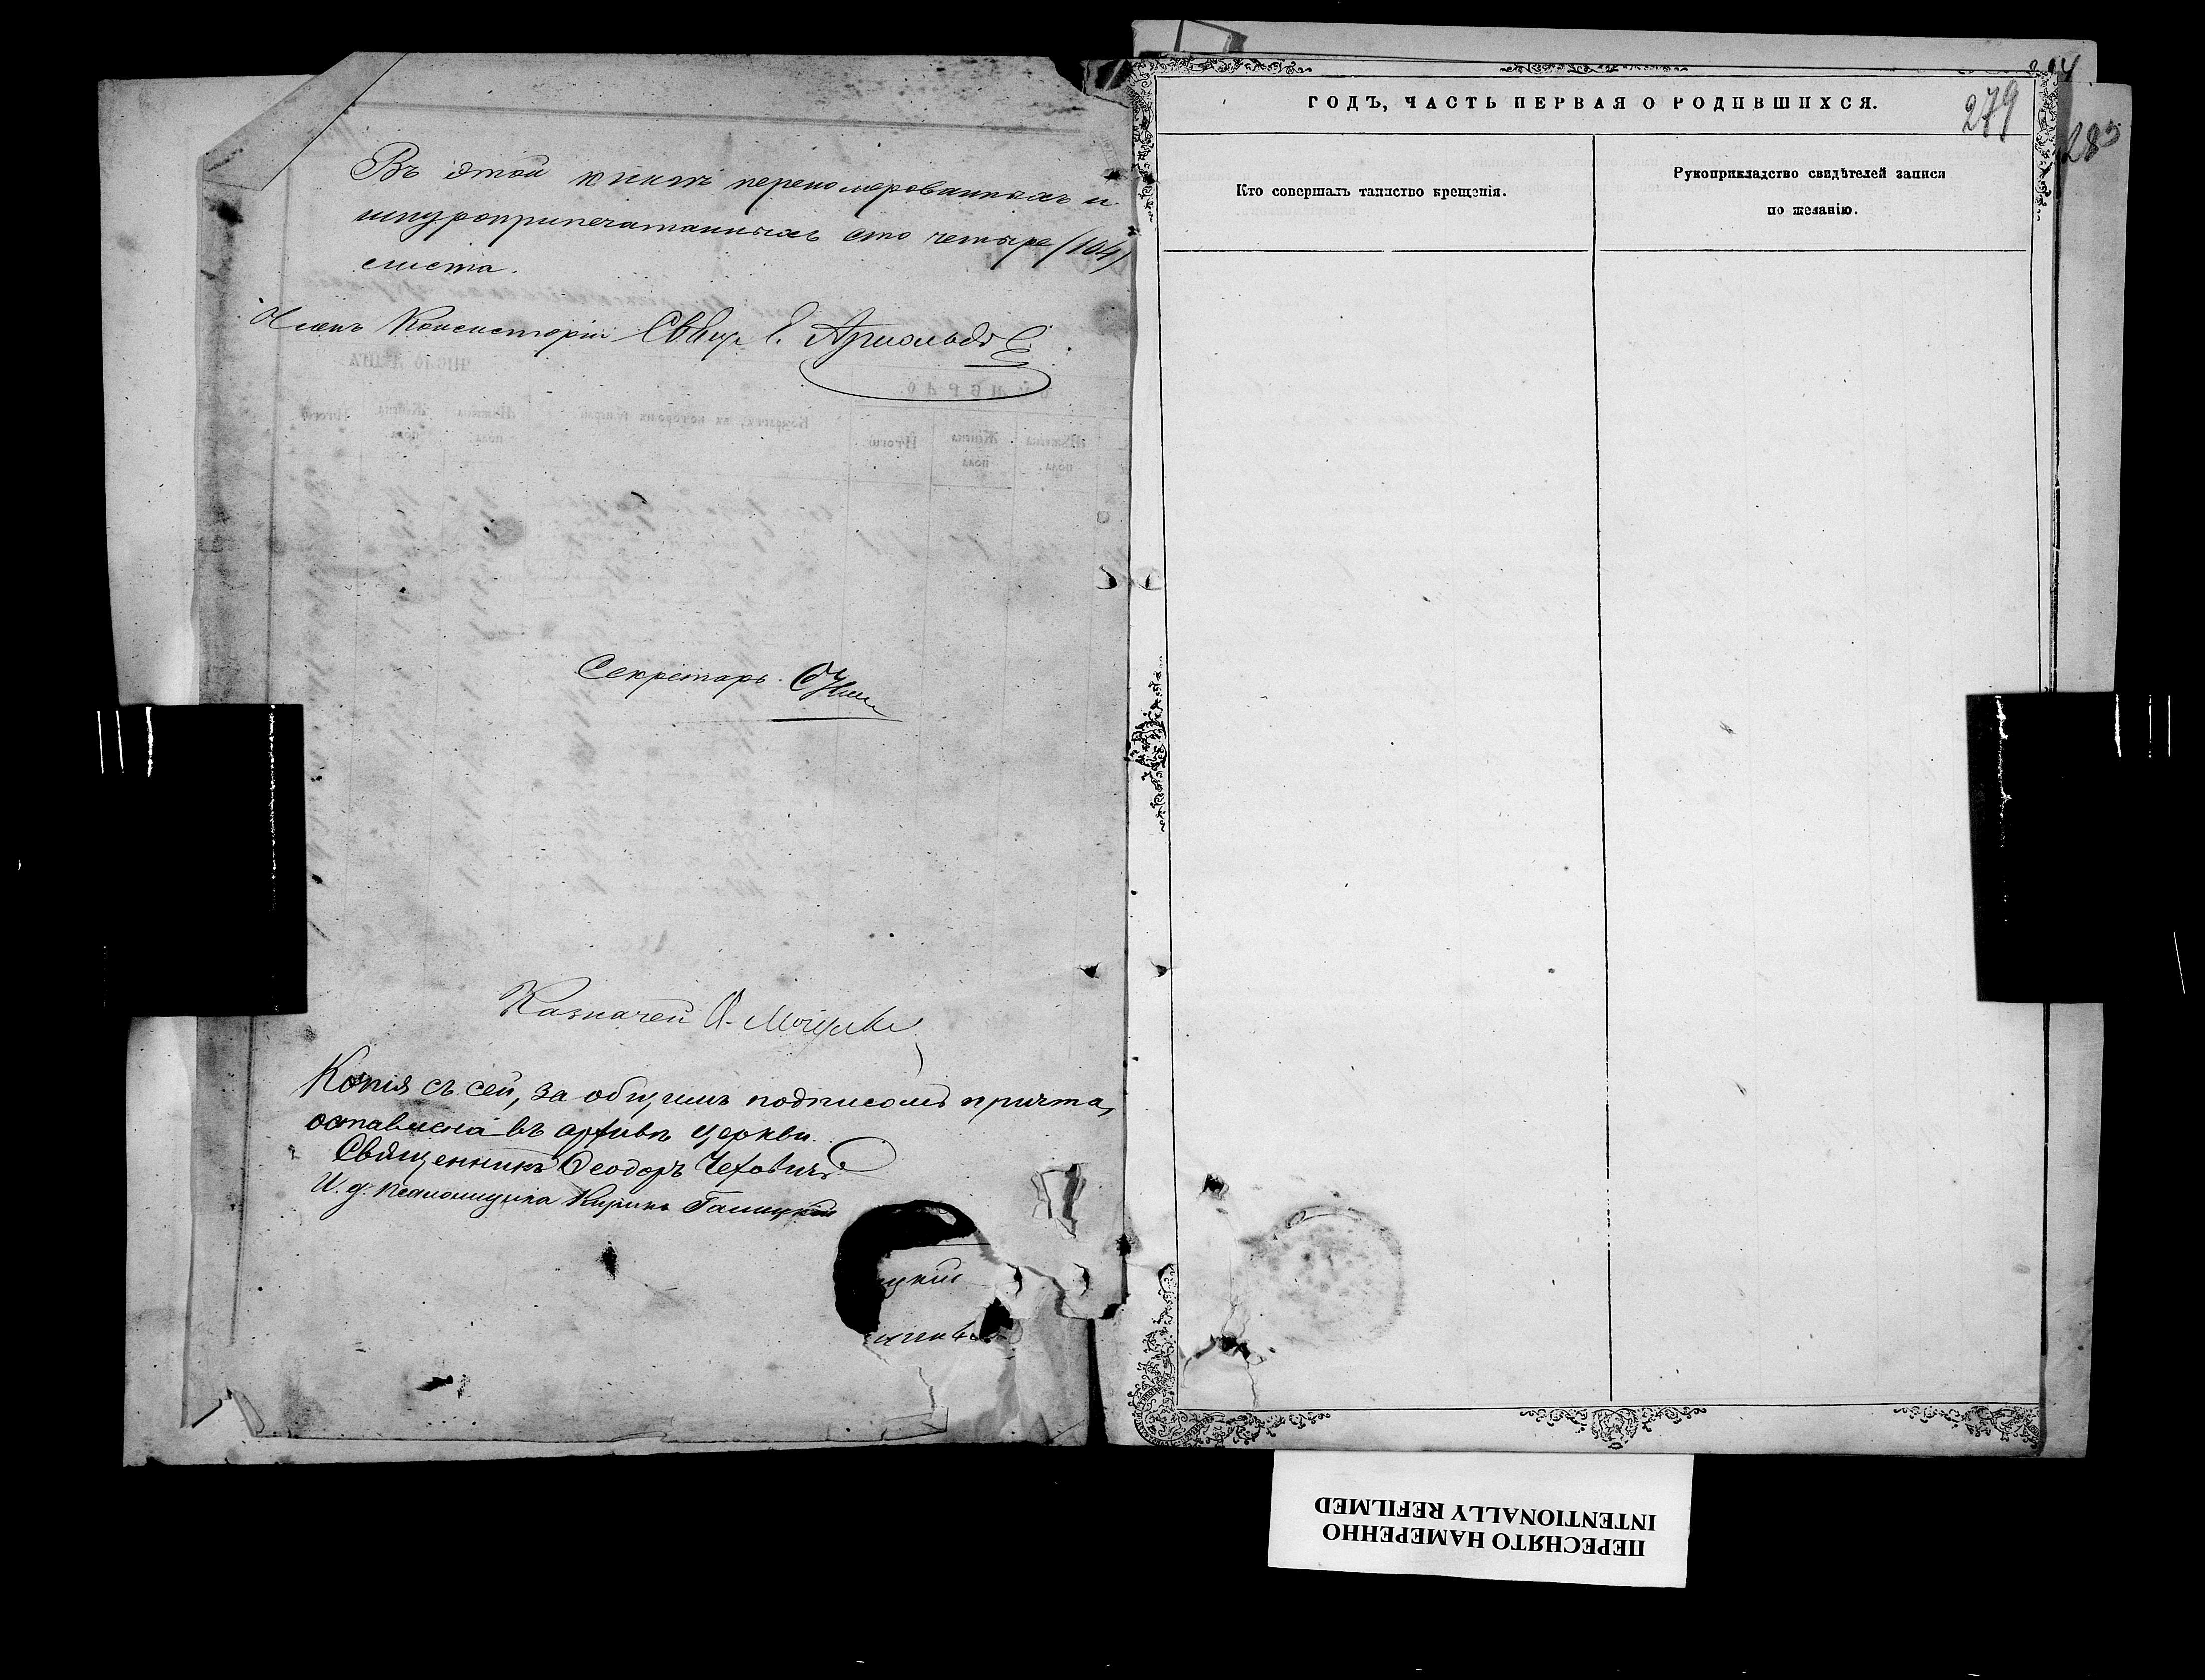 Въ этой книгѣ перенумерованныхъ и
шнуроприпечатанныхъ сто четыре /104/
листа.
Членъ Консисторіи Свящ. Е. Арнольдъ
Секретарь
Казначей
Копія съ сей, за общимъ подписомъ причта,
оставлена въ архивѣ церкви.
Священникъ Ѳеодоръ Чеховичъ
И. д. псаломщика Кириллъ Галицкій
цкій
ГОДЪ, ЧАСТЬ ПЕРВАЯ О РОДИВШИХСЯ.
279
Кто совершалъ таинство крещенія.
Рукоприкладство свидѣтелей записи
по желанію.
ПЕРЕСНЯТО НАМЕРЕННО
INTENTIONALLY REFILMED